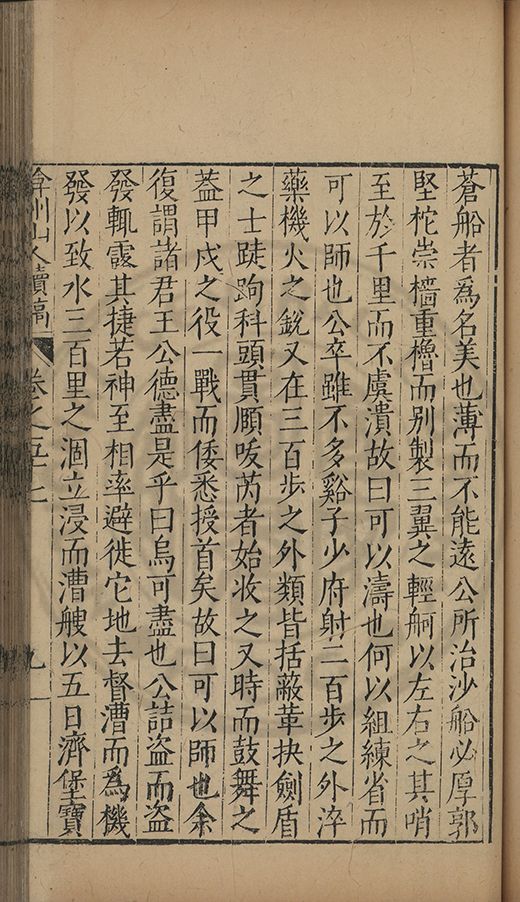 蒼船者為名美也薄而不能遠公所治沙船必厚郭
堅柁崇檣重櫓而別製三翼之輕舸以左右之其哨
至於千里而不虞潰故曰可以濤也何以組練省而
可以師也公卒雖不多谿子少府射二百步之外淬
藥機火之銳又在三百步之外類皆括蔽革抉劍盾
之士踕跔科頭貫頤咬芮者始收之又時而鼓舞之
蓋甲戍之役一戰而倭悉授首矣故曰可以師也余
復謂諸君王公德盡是乎曰烏可盡也公詰盜而盜
發輒䨥其捷若神至相率避徙它地去督漕而為機
發以致水三百里之涸立浸而漕艘以五日濟堡寶
弇州山人續稿
卷之五十
九